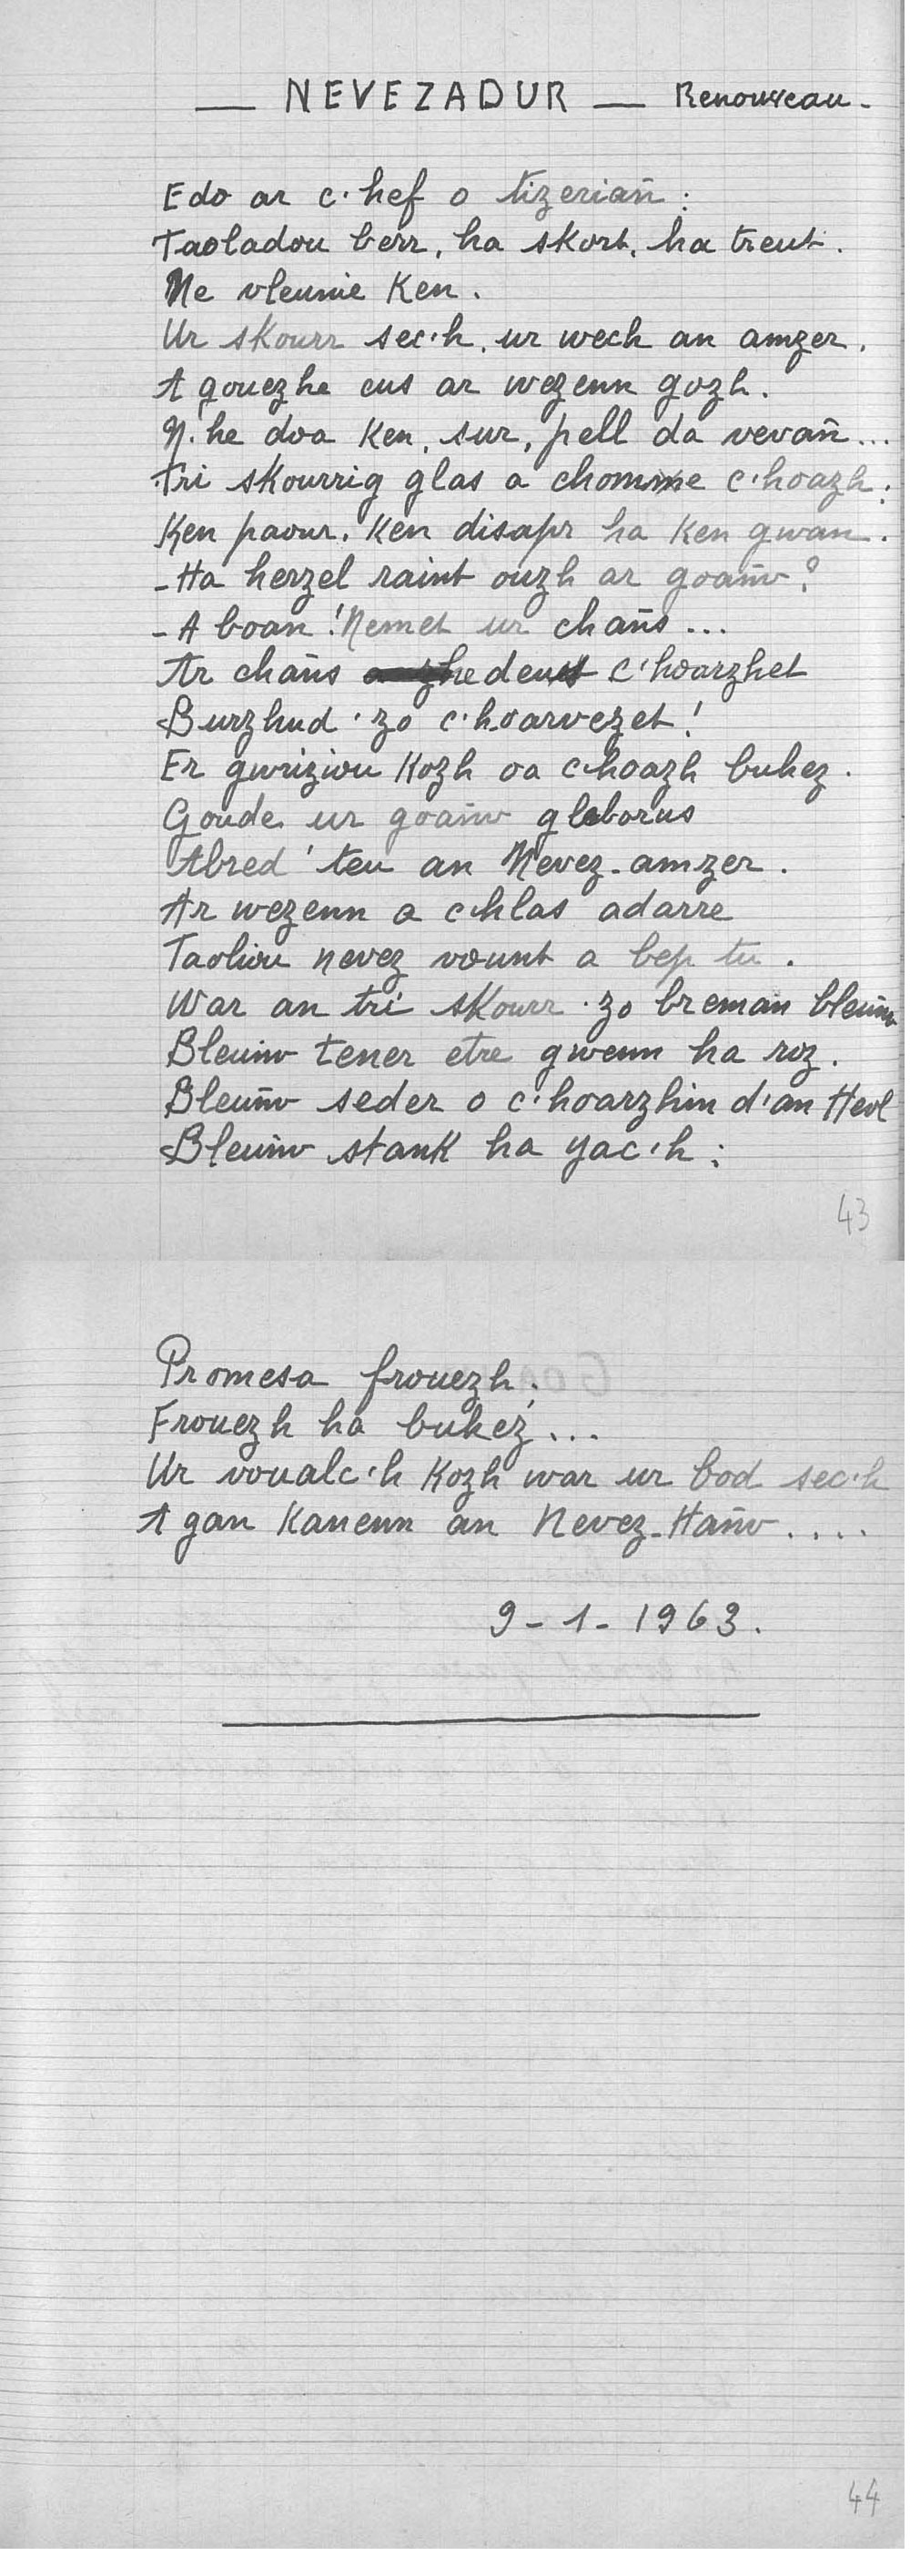 — NEVEZADUR — Renouveau -
Edo ar c'hef o tizeriañ :
Taoladou berr, ha skort, ha treut.
Ne vleunie Ken.
Ur skourr sec'h, ur wech an amzer,
A gouezhe eus ar wezenn gozh.
N'he doa Ken, sur, pell da vevañ...
Tri skourrig glas a chomme c'hoazh :
Ken paour, Ken disapr ha Ken gwan.
- Ha herzel raint ouzh ar goañv ?
- A boan ! Nemet ur chañs ...
Ar chañs deus c'hoarzhet
Burzhud 'zo c'hoarvezet !
Er gwriziou Kozh oa c'hoazh buhez.
Goude ur goañv gleborus
Abred 'teu an Nevez-amzer.
Ar wezenn a c'hlas adarre
Taoliou nevez vount a bep tu.
War an tri skourr 'zo breman bleuñv
Bleuñv tener etre gwenn ha roz.
Bleuñv seder o c'hoarzhin d'an Heol
Bleuñv stank ha yac'h :
43
Promesa frouezh,
Frouezh ha buhez...
Ur voualc'h Kozh war ur bod sec'h
A gan Kanenn an Nevez-Hañv ....
9-1-1963.
44